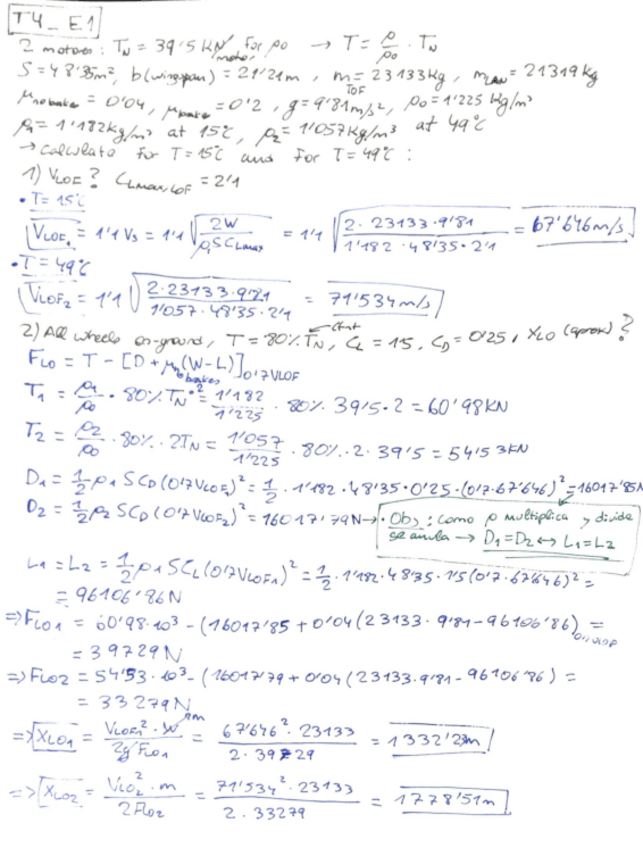 T4_E1
2 motores: T_N = 39'5 KN/motor for ρ₀ → T = ρ/ρ₀ · T_N
S = 48'35m², b(wingspan) = 21'21m, m_TOF = 23133Kg, m_LAN = 21319Kg
μ_no brake = 0'04, μ_brake = 0'2, g = 9'81m/s², ρ₀ = 1'225 Kg/m³
ρ₁ = 1'182Kg/m³ at 15°C, ρ₂ = 1'057Kg/m³ at 49°C
→ calculate for T = 15°C and for T = 49°C :
1) V_LOF? C_Lmax,LOF = 2'1
• T = 15°C
V_LOF₁ = 1'1 V_S = 1'1 √(2W / ρ₁SC_Lmax) = 1'1 √(2 · 23133 · 9'81 / 1'182 · 48'35 · 2'1) = 67'646m/s
• T = 49°C
V_LOF₂ = 1'1 √(2 · 23133 · 9'81 / 1'057 · 48'35 · 2'1) = 71'534m/s
2) All wheels on-ground, T = 80% T_N ← Cnst, C_L = 1'5, C_D = 0'25, X_LO (aprox)?
F_LO = T - [D + μ_no brakes (W-L)]_0'7V_LOF
T₁ = ρ₁/ρ₀ · 80% T_N · 2 = 1'182/1'225 · 80% 39'5 · 2 = 60'98KN
T₂ = ρ₂/ρ₀ · 80% · 2T_N = 1'057/1'225 · 80% · 2 · 39'5 = 54'53KN
D₁ = 1/2 ρ₁ SC_D (0'7V_LOF₁)² = 1/2 · 1'182 · 48'35 · 0'25 · (0'7 · 67'646)² = 16017'85N
D₂ = 1/2 ρ₂ SC_D (0'7V_LOF₂)² = 16017'79N → • Obs: como ρ multiplica y divide
se anula → D₁ = D₂ ↔ L₁ = L₂
L₁ = L₂ = 1/2 ρ₁ SC_L (0'7V_LOF₁)² = 1/2 · 1'182 · 48'35 · 1'5 (0'7 · 67'646)² =
= 96106'86N
⇒ F_LO1 = 60'98 · 10³ - (16017'85 + 0'04 (23133 · 9'81 - 96106'86)_0'7V_LOF =
= 39729N
⇒ F_LO2 = 54'53 · 10³ - (16017'79 + 0'04 (23133 · 9'81 - 96106'86) =
= 33279N
⇒ X_LO1 = V_LOF1² · W m / 2g F_LO1 = 67'646² · 23133 / 2 · 39729 = 1332'2m
⇒ X_LO2 = V_LO2² · m / 2F_LO2 = 71'534² · 23133 / 2 · 33279 = 1778'51m